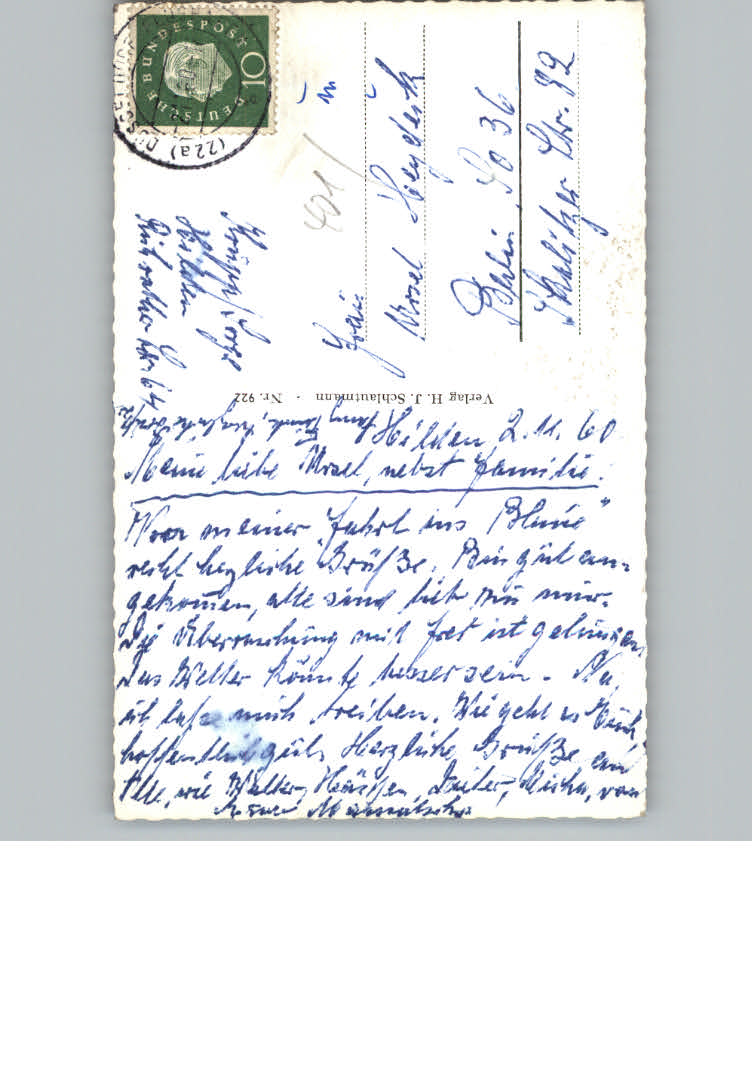 DEUTSCHE BUNDESPOST
10
(22a) DÜSSELDORF
401
Frau
Ursel Heydeck
Berlin SO 36
Skalitzer Str. 92
Hilden
Verlag H. J. Schlautmann · Nr. 922
Hilden, 2.11.60
Meine liebe Ursel, nebst Familie!
Von meiner "Fahrt ins Blaue"
recht herzliche Grüße. Bin gut an-
gekommen, alle sind lieb zu mir.
Die Überraschung mit ist gelungen
Das Wetter könnte besser sein. Na,
ich lasse mich treiben. Wie geht es Euch
hoffentlich gut. Herzliche Grüße an
Alle, wie Walter, Dieter, von